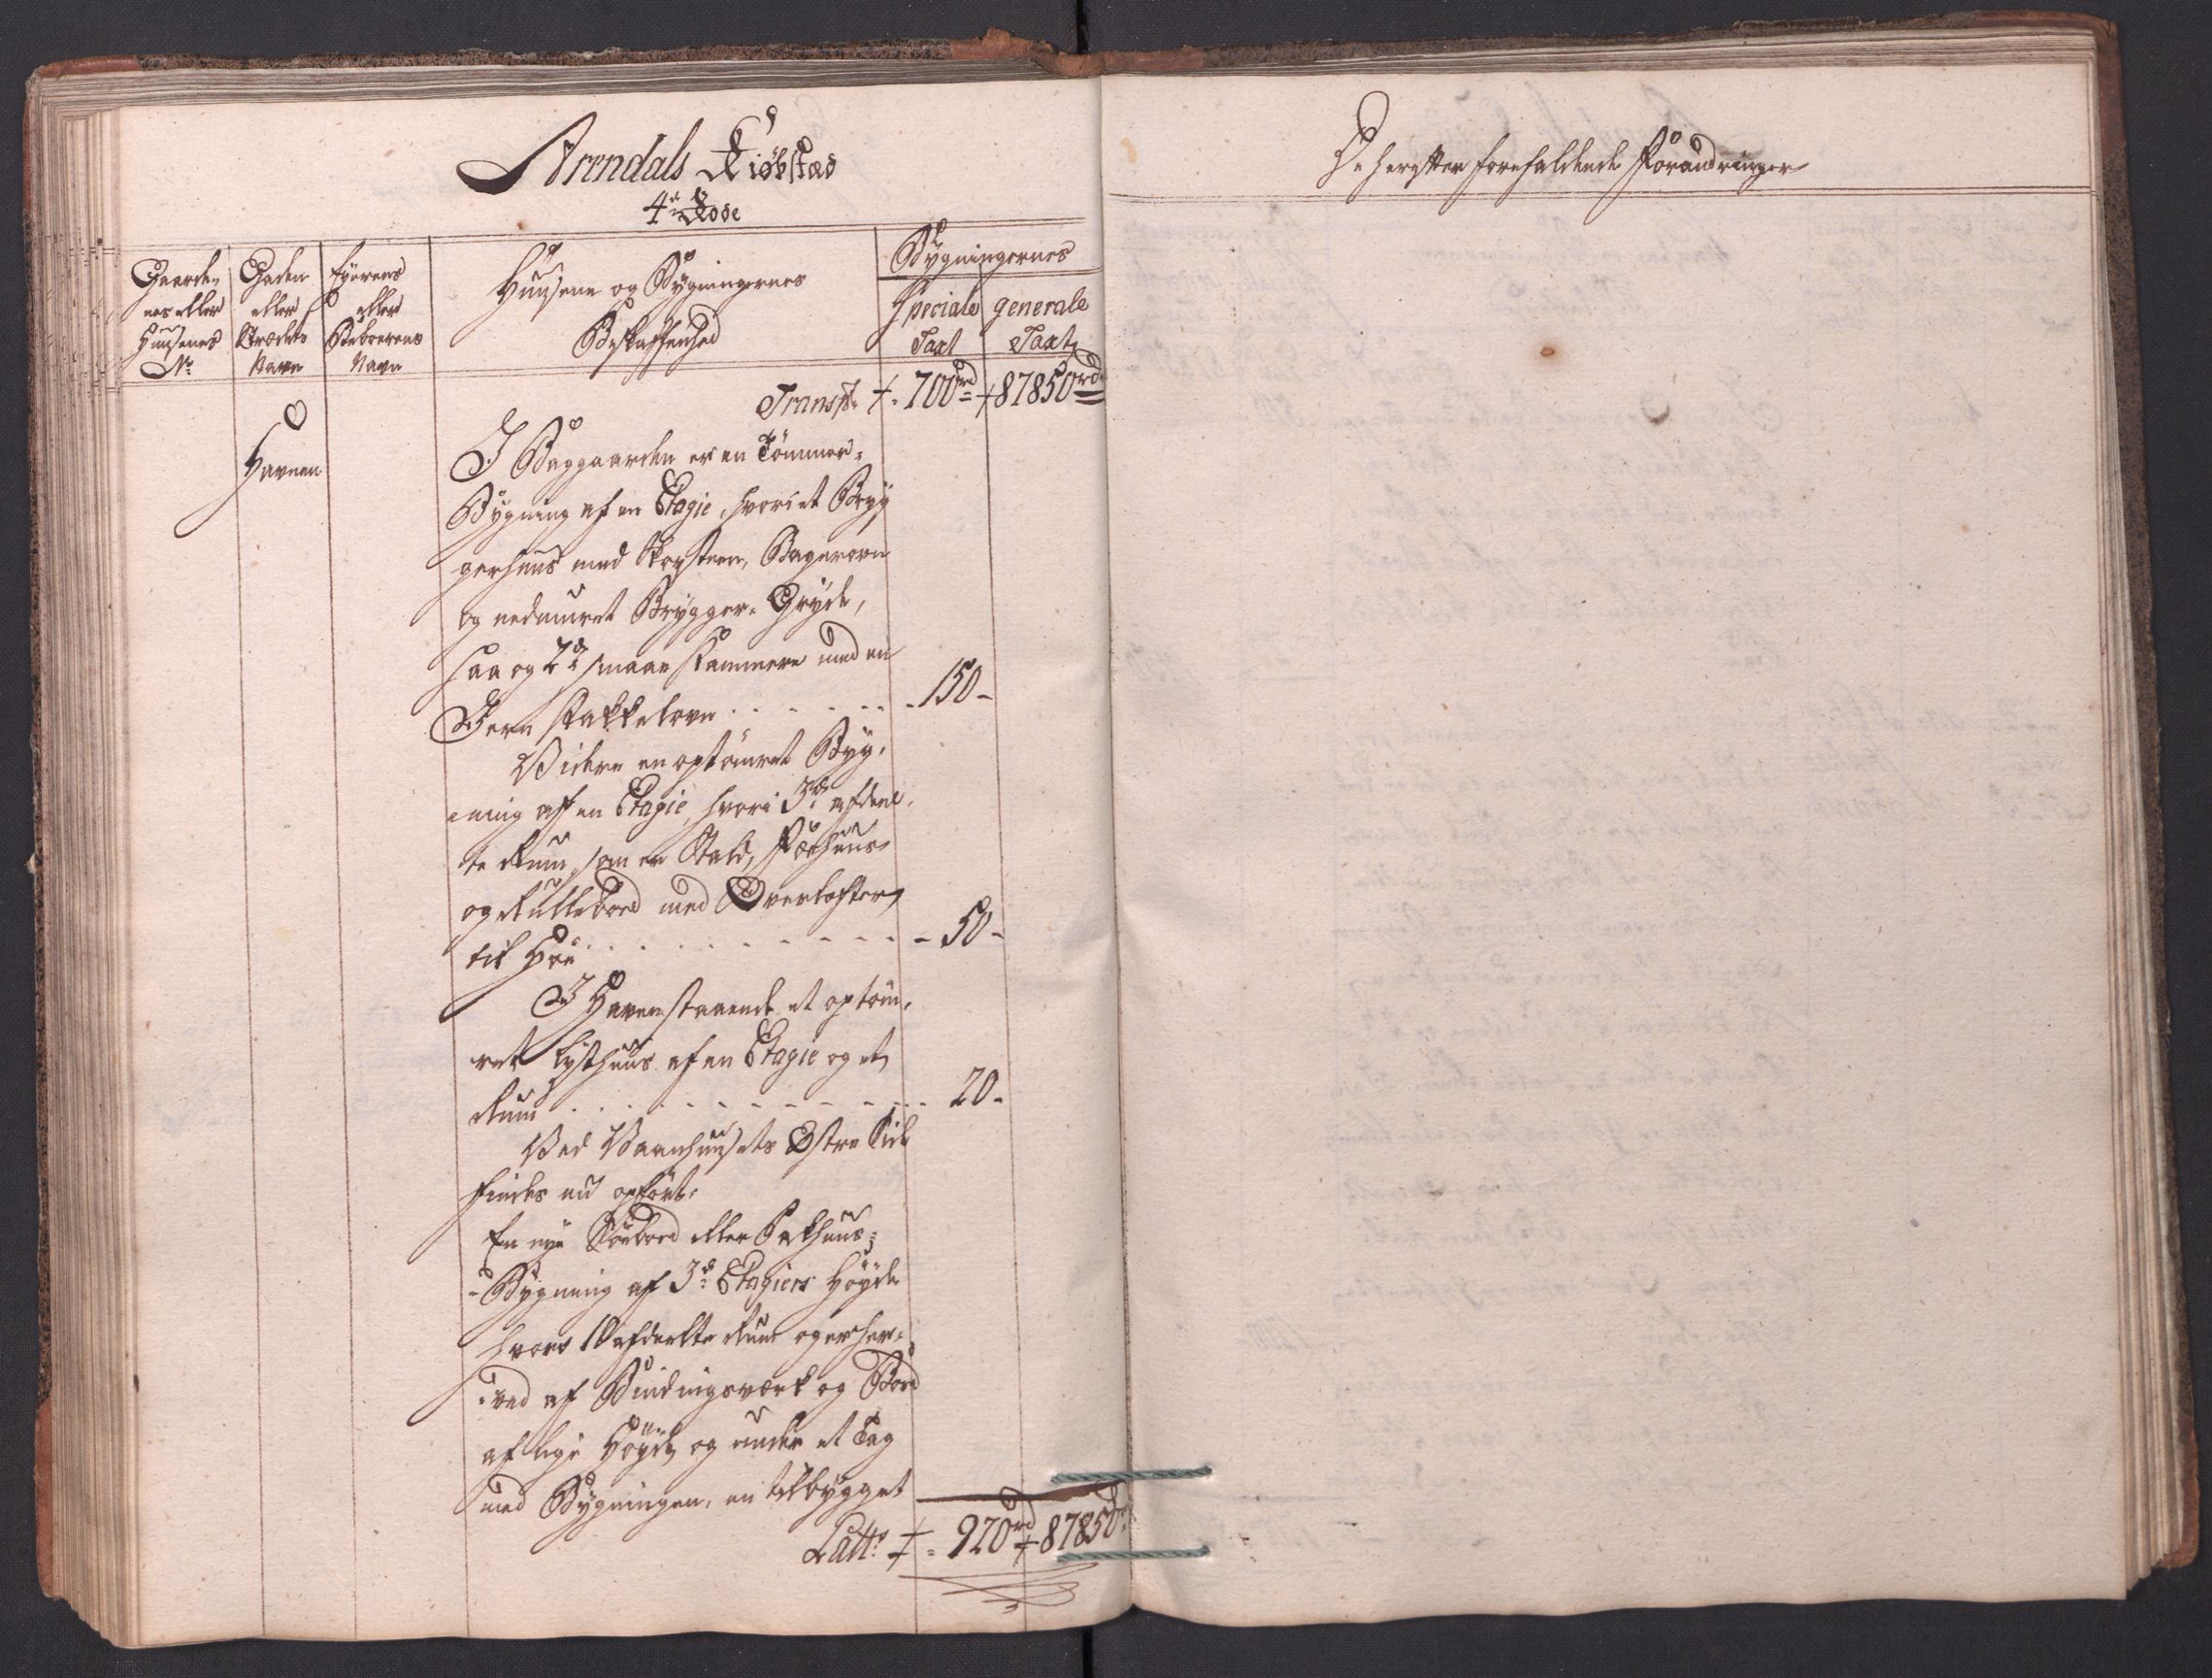 Arendals Kiöbstad
4de Rode
Gaarde
nes eller
Huusenes
No
Gaden
eller
Strædets
Navn
Eyerens
eller
Beboerens
Navn
Huusene og Bygningernes
Beskaffenhed
Bygningernes
Speciale
Taxt
generale
Taxt
Transpt 700rd 87850rd
Havnen
I Baggaarden er en Tömmer-
Bygning af en Etagie, hvori et Bryg
gerhuus med Skorsteen, Bagerovn
og nedmuret Brygger-Gryde,
saa og 2de smaae Kammere med en
Jern Kakkelovn - 150 -
Videre en optömret Byg-
ning af en Etagie, hvori 3de afdeel-
te Rum, som er Stald, Föehuus
og Rullebord med Overlofter
til Höe - 50 -
I Haven staaende et optöm-
ret Lysthuus af en Etagie og et
Rum 20 -
Ved Vaanhusets Østre Side
findes nu opfört:
En nye Söebod eller Pakhuus-
Bygning af 3de Etagiers Höyde
hvori 10 afdeelte Rum og er her-
ved af Bindingsværk og Bord
af lige Höyde og under et Tag
med Bygningen, en tilbygget
Latts 920rd 87850
De herefter forefaldende Forandringer